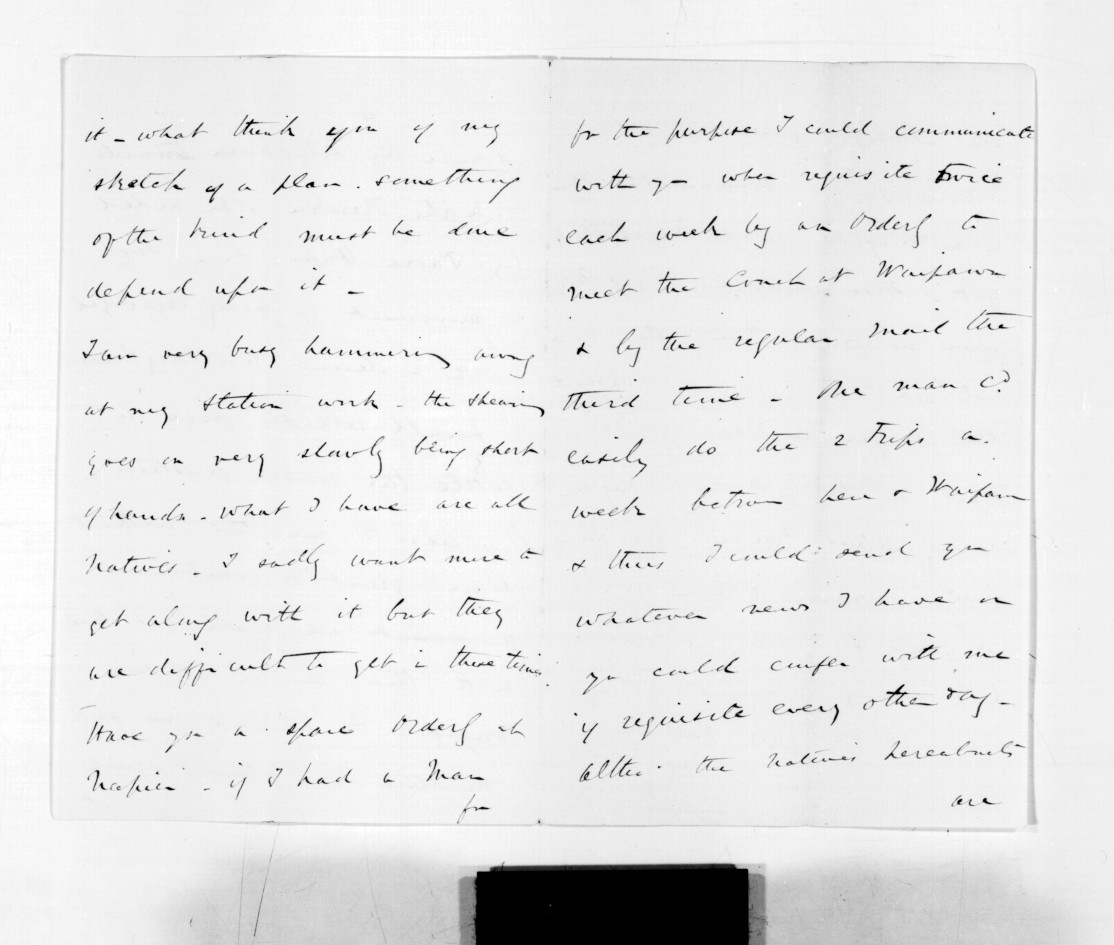 it - what think you of my
sketch of a plan. something
of the kind must be done
depend upon it -
I am very busy hammering away
at my station work - the shearing
goes on very slowly being short
of hands - what I have are all
Natives - I sadly want more to
get along with it but they
are difficult to get in these times.
Have you a spare Orderly at
Napier - if I had a Man
for
for the purpose I could communicate
with you when requisite twice
each week by an Orderly to
meet the Coach at Waipawa
& by the regular mail the
third time - One man cd
easily do the 2 trips a
week between here & Waipawa
& thus I could send you
whatever news I have or
you could confer with me
if requisite every other day -
Altho' the natives hereabouts
are